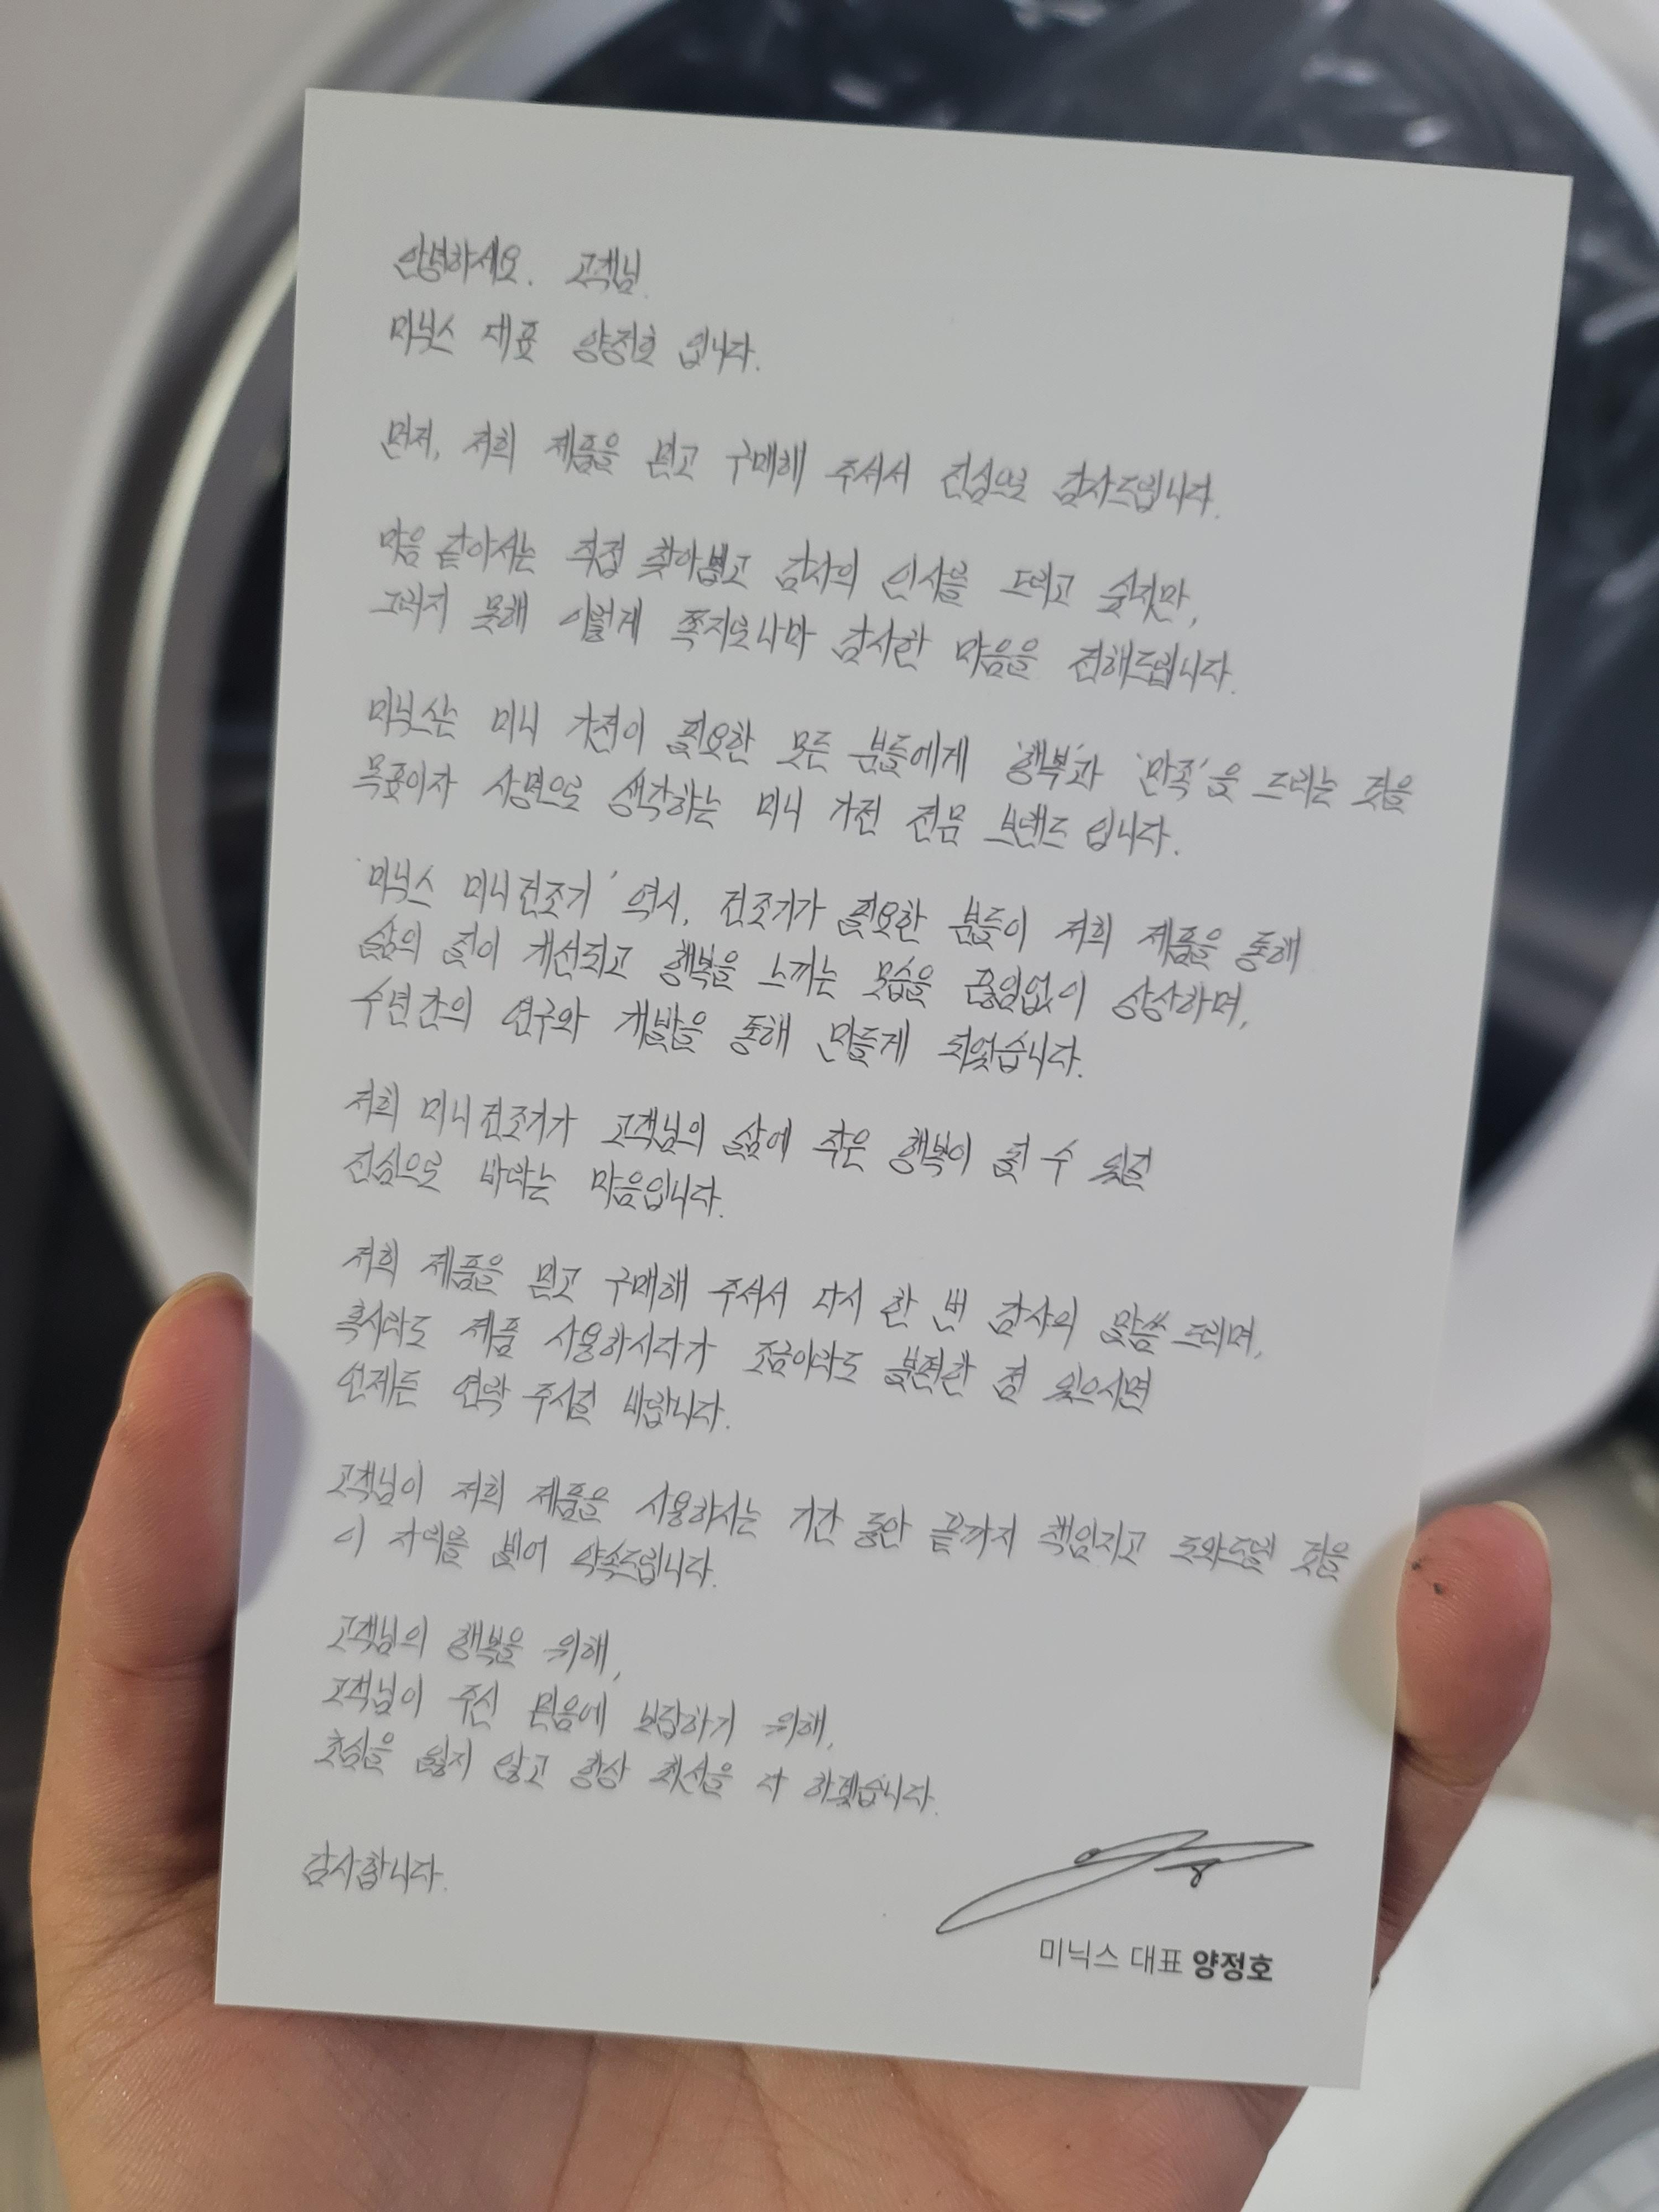 안녕하세요. 고객님.
미닉스 대표 양정호 입니다.
먼저, 저희 제품을 믿고 구매해 주셔서 진심으로 감사드립니다.
마음 같아서는 직접 찾아뵙고 감사의 인사를 드리고 싶지만,
그러지 못해 이렇게 쪽지로나마 감사한 마음을 전해드립니다.
미닉스는 미니 가전이 필요한 모든 분들에게 '행복'과 '만족'을 드리는 것을
목표이자 사명으로 생각하는 미니 가전 전문 브랜드 입니다.
'미닉스 미니건조기' 역시, 건조기가 필요한 분들이 저희 제품을 통해
삶의 질이 개선되고 행복을 느끼는 모습을 끊임없이 상상하며,
수년간의 연구와 개발을 통해 만들게 되었습니다.
저희 미니건조기가 고객님의 삶에 작은 행복이 될 수 있길
진심으로 바라는 마음입니다.
저희 제품을 믿고 구매해 주셔서 다시 한 번 감사의 말씀 드리며,
혹시라도 제품 사용하시다가 조금이라도 불편한 점 있으시면
언제든 연락 주시길 바랍니다.
고객님이 저희 제품을 사용하시는 기간 동안 끝까지 책임지고 도와드릴 것을
이 자리를 빌어 약속드립니다.
고객님의 행복을 위해,
고객님이 주신 믿음에 보답하기 위해,
초심을 잃지 않고 항상 최선을 다 하겠습니다.
감사합니다.
미닉스 대표 양정호